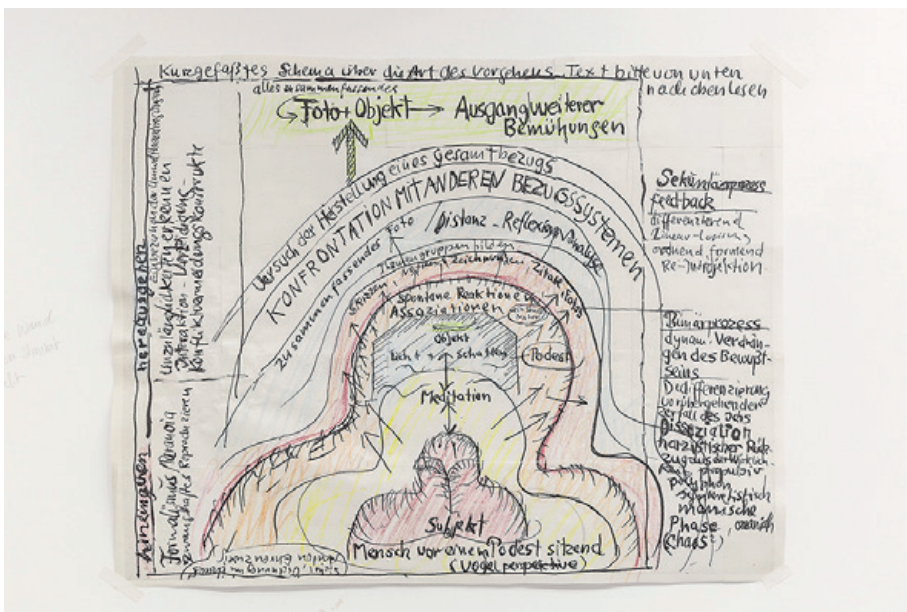 Kurzgefaßtes Schema über die Art des Vorgehens Text bitte von unten
nach oben lesen
alles zusammenfassendes
Foto + Objekt → Ausgang weiterer
Bemühungen
Versuch der Herstellung eines Gesamtbezugs
KONFRONTATION MIT ANDEREN BEZUGSSYSTEMEN
zusammenfassender Foto / Distanz - Reflexion Analyse
Themengruppen bilden
Skizzen, Zeichnungen, Zitate, Fotos
Spontane Reaktionen
Assoziationen
Objekt
Licht + Schatten
Podest
Meditation
Subjekt
Mensch vor einem Podest sitzend
(Vogelperspektive)
herausgehen
Unzulänglichkeiten erkennen
Interaktion -
Konfliktvermeidungskonstrukte
hineingehen
Formalismus Paranoia
zwanghaftes Reproduzieren
Sekundärprozess
feedback
differenzierend
ordnend, formend
Re-Introjektion
Primärprozess
dynam. Verdrän-
gen des Bewußt-
seins
Dedifferenzierung
vorhergehender
Zerfall des Ichs
Dissoziation
narzistischer Rück-
zug aus der Wirklich-
keit
polyphon
synkretistisch
manische
Phase, ozeanisch
(Chaos?)